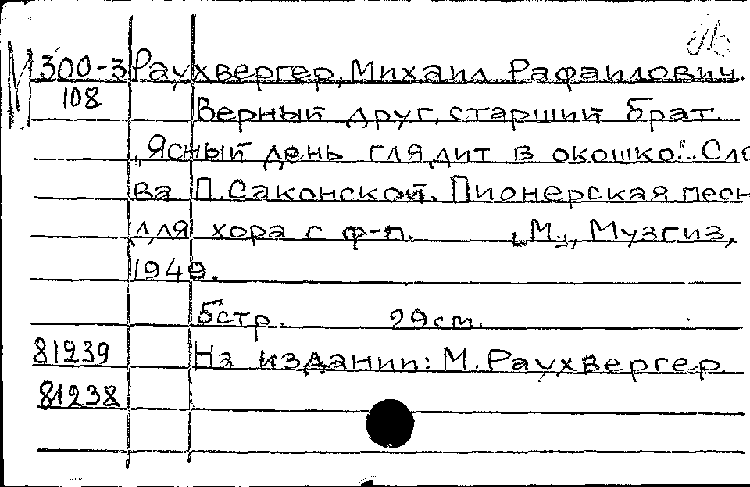 М 300-3 Раухвергер, Михаил Рафаилович.
108
Верный друг, старший брат.
„Ясный день глядит в окошко". Сло
ва П. Саконской. Пионерская песн
для хора с ф-п. [М.], Музгиз,
1949.
6стр. 29см.
81239 На издании: М. Раухвергер.
81238